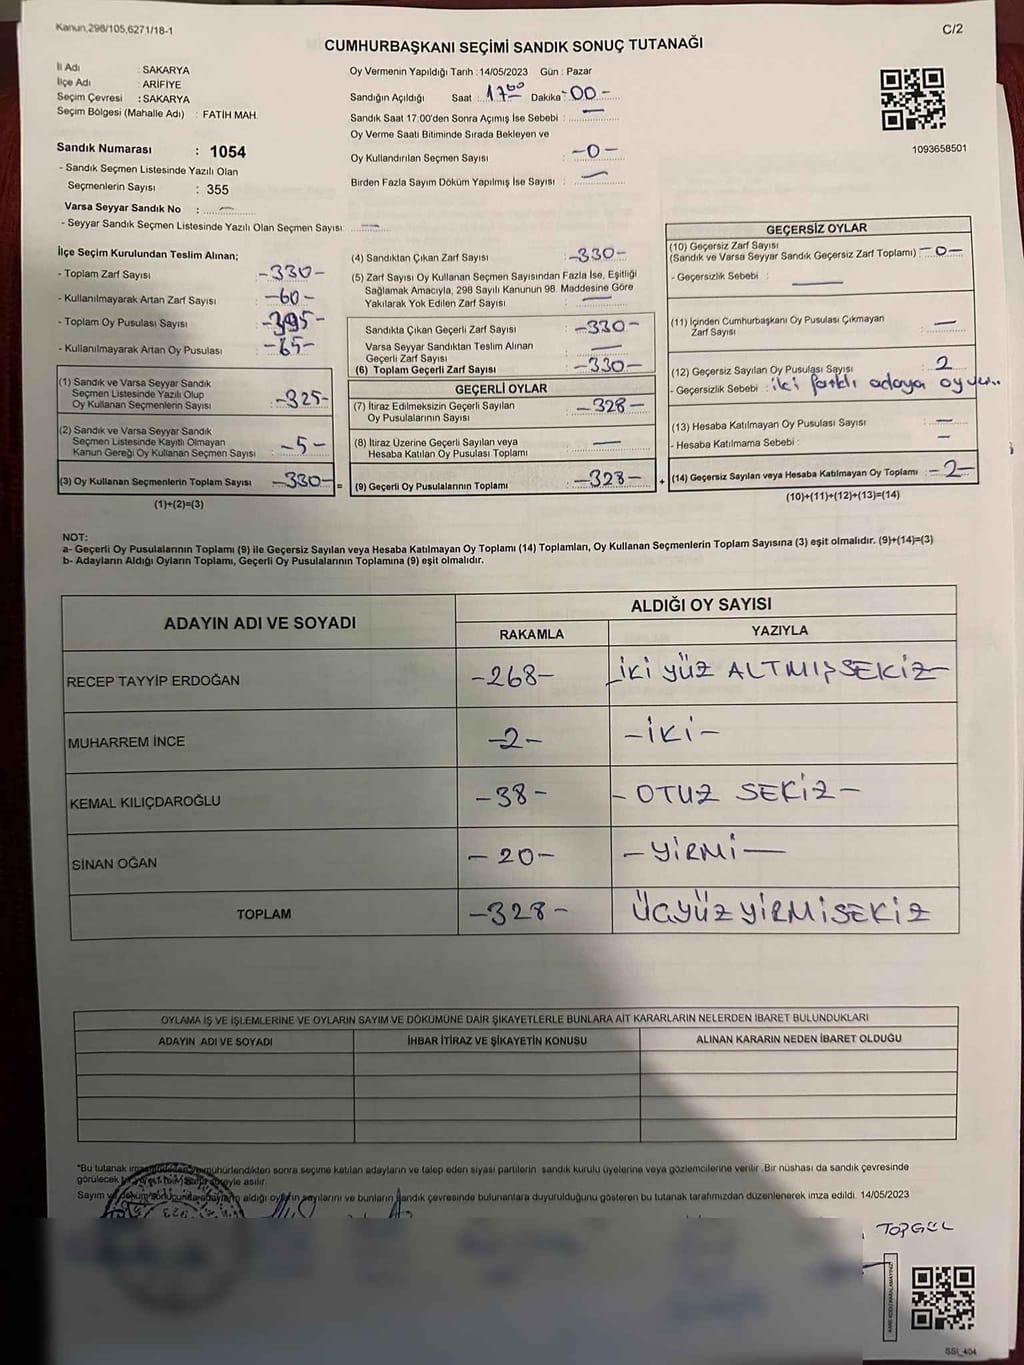 Kanun,298/105,6271/18-1
C/2
CUMHURBAŞKANI SEÇİMİ SANDIK SONUÇ TUTANAĞI
İl Adı : SAKARYA
İlçe Adı : ARİFİYE
Seçim Çevresi : SAKARYA
Seçim Bölgesi (Mahalle Adı) : FATİH MAH.
Sandık Numarası : 1054
- Sandık Seçmen Listesinde Yazılı Olan
Seçmenlerin Sayısı : 355
Varsa Seyyar Sandık No : —
- Seyyar Sandık Seçmen Listesinde Yazılı Olan Seçmen Sayısı: —
Oy Vermenin Yapıldığı Tarih :14/05/2023 Gün : Pazar
Sandığın Açıldığı Saat : 17 00 Dakika -00-
Sandık Saat 17:00'den Sonra Açımış İse Sebebi : —
Oy Verme Saati Bitiminde Sırada Bekleyen ve
Oy Kullandırılan Seçmen Sayısı : -0-
Birden Fazla Sayım Döküm Yapılmış İse Sayısı : —
1093658501
İlçe Seçim Kurulundan Teslim Alınan;
- Toplam Zarf Sayısı : -330-
- Kullanılmayarak Artan Zarf Sayısı : -60-
- Toplam Oy Pusulası Sayısı : -395-
- Kullanılmayarak Artan Oy Pusulası : -65-
(1) Sandık ve Varsa Seyyar Sandık
Seçmen Listesinde Yazılı Olup
Oy Kullanan Seçmenlerin Sayısı : -325-
(2) Sandık ve Varsa Seyyar Sandık
Seçmen Listesinde Kayıtlı Olmayan
Kanun Gereği Oy Kullanan Seçmen Sayısı : -5-
(3) Oy Kullanan Seçmenlerin Toplam Sayısı : -330- =
(1)+(2)=(3)
(4) Sandıktan Çıkan Zarf Sayısı : -330-
(5) Zarf Sayısı Oy Kullanan Seçmen Sayısından Fazla İse, Eşitliği
Sağlamak Amacıyla, 298 Sayılı Kanunun 98. Maddesine Göre
Yakılarak Yok Edilen Zarf Sayısı : —
Sandıkta Çıkan Geçerli Zarf Sayısı : -330-
Varsa Seyyar Sandıktan Teslim Alınan
Geçerli Zarf Sayısı : —
(6) Toplam Geçerli Zarf Sayısı : -330-
GEÇERLİ OYLAR
(7) İtiraz Edilmeksizin Geçerli Sayılan
Oy Pusulalarının Sayısı : -328-
(8) İtiraz Üzerine Geçerli Sayılan veya
Hesaba Katılan Oy Pusulası Toplamı : —
(9) Geçerli Oy Pusulalarının Toplamı : -328- +
GEÇERSİZ OYLAR
(10) Geçersiz Zarf Sayısı
(Sandık ve Varsa Seyyar Sandık Geçersiz Zarf Toplamı) : -0-
- Geçersizlik Sebebi : —
(11) İçinden Cumhurbaşkanı Oy Pusulası Çıkmayan
Zarf Sayısı : —
(12) Geçersiz Sayılan Oy Pusulası Sayısı : 2
- Geçersizlik Sebebi : iki farklı adaya oy
(13) Hesaba Katılmayan Oy Pusulası Sayısı : —
- Hesaba Katılmama Sebebi : —
(14) Geçersiz Sayılan veya Hesaba Katılmayan Oy Toplamı : -2-
(10)+(11)+(12)+(13)=(14)
NOT:
a- Geçerli Oy Pusulalarının Toplamı (9) ile Geçersiz Sayılan veya Hesaba Katılmayan Oy Toplamı (14) Toplamları, Oy Kullanan Seçmenlerin Toplam Sayısına (3) eşit olmalıdır. (9)+(14)=(3)
b- Adayların Aldığı Oyların Toplamı, Geçerli Oy Pusulalarının Toplamına (9) eşit olmalıdır.
ADAYIN ADI VE SOYADI
ALDIĞI OY SAYISI
RAKAMLA YAZIYLA
RECEP TAYYİP ERDOĞAN -268- İKİ YÜZ ALTMIŞSEKİZ-
MUHARREM İNCE -2- -İKİ-
KEMAL KILIÇDAROĞLU -38- - OTUZ SEKİZ -
SİNAN OĞAN - 20 - - YİRMİ —
TOPLAM -328- ÜÇYÜZYİRMİSEKİZ
OYLAMA İŞ VE İŞLEMLERİNE VE OYLARIN SAYIM VE DÖKÜMÜNE DAİR ŞİKAYETLERLE BUNLARA AİT KARARLARIN NELERDEN İBARET BULUNDUKLARI
ADAYIN ADI VE SOYADI İHBAR İTİRAZ VE ŞİKAYETİN KONUSU ALINAN KARARIN NEDEN İBARET OLDUĞU
*Bu tutanak mühürlendikten sonra seçime katılan adayların ve talep eden siyasi partilerin sandık kurulu üyelerine veya gözlemcilerine verilir. Bir nüshası da sandık çevresinde
görülecek asılır.
Sayım aldığı oyların sayılarını ve bunların sandık çevresinde bulunanlara duyurulduğunu gösteren bu tutanak tarafımızdan düzenlenerek imza edildi. 14/05/2023
TOPGÜL
SSİ_404